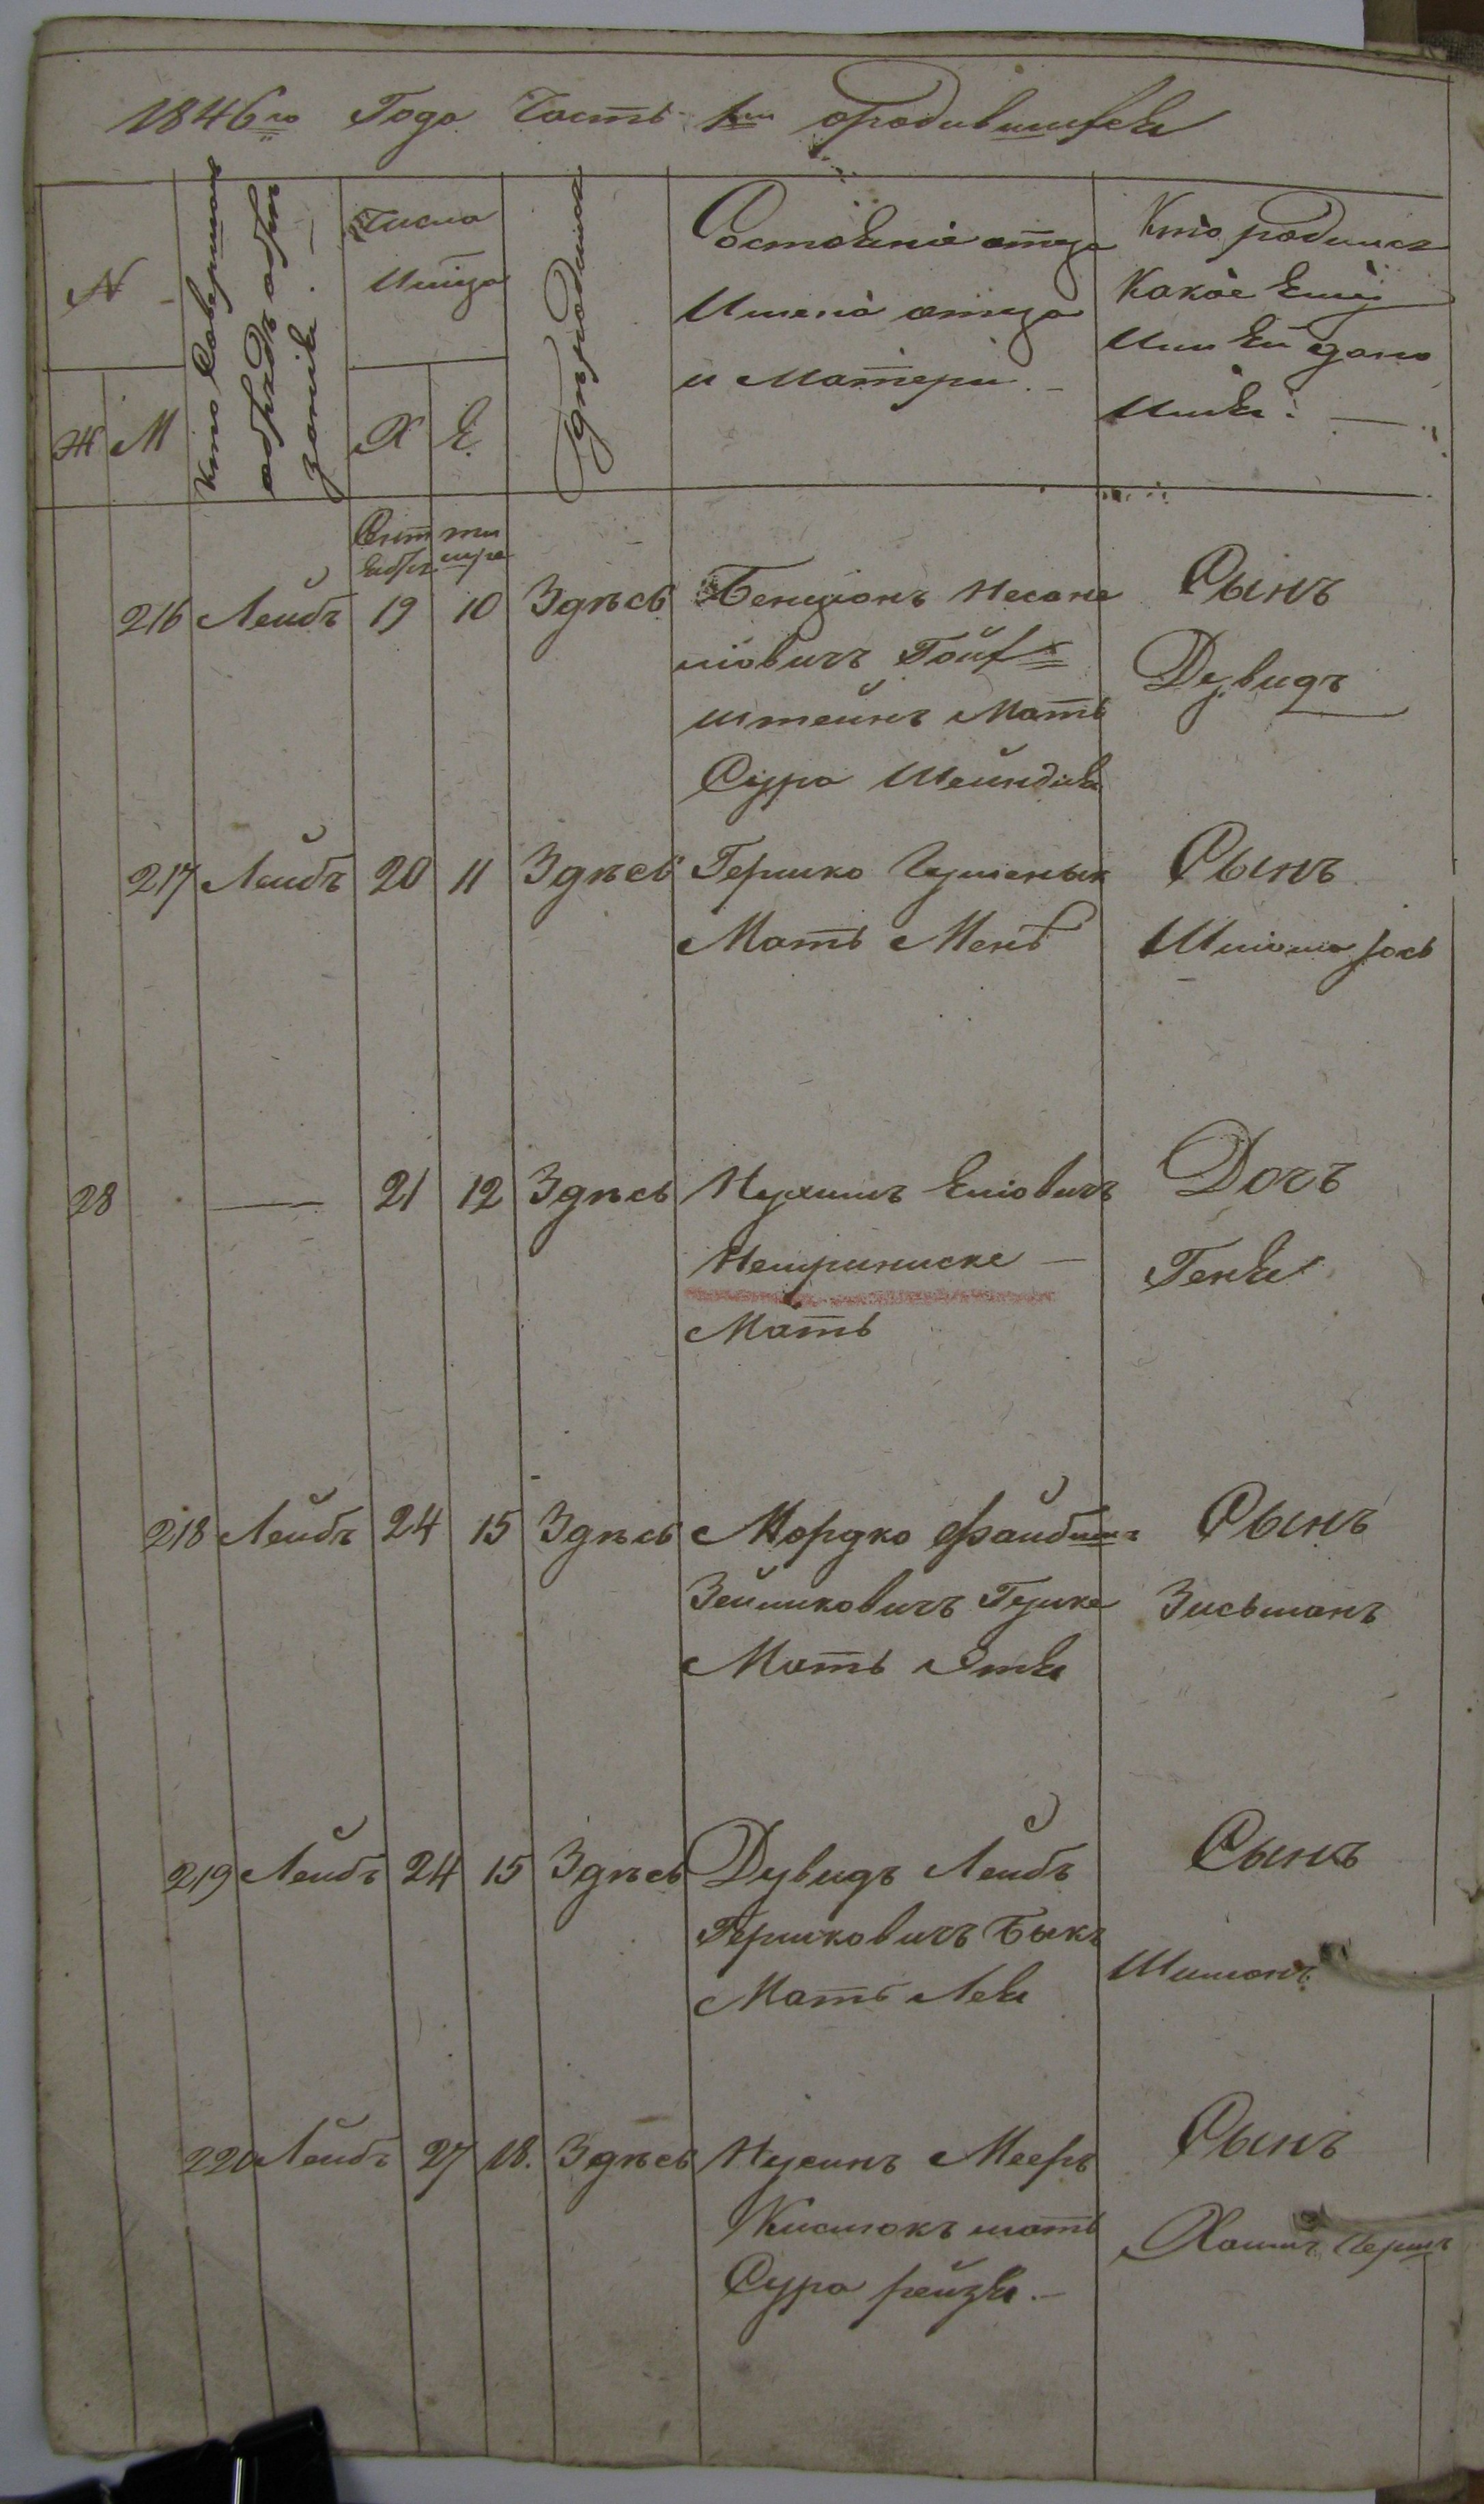 1846го Года Часть 1я ородившихся
N
Ж М
Кто Совершалъ
обрядъ обре
занiя. —
Числа
Х Е.
Гдѣ родился
Состоянiе отца
Имена отца
и Матери. —
Кто родился
Какое Ему
Или Ей дано
Имя. —
Сент
ября
ти
шре
216 Лейбъ 19 10 Здѣсь Бенцiонъ Несоне
лiовичъ Гоиф
штейнъ Мать
Сура Шейндля
Сынъ
Дувидъ
217 Лейбъ 20 11 Здѣсь Гершко
Мать
Сынъ
Шлiома Iось
28 — 21 12 Здѣсь Нухимъ Елiовичъ
Немриниске —
Мать
Дочъ
Геня
218 Лейбъ 24 15 Здѣсь Мордко Файбишъ
Зейликовичъ
Мать Этя
Сынъ
Зисьманъ
219 Лейбъ 24 15 Здѣсь Дувидъ Лейбъ
Гершковичъ Быкъ
Мать Лея
Сынъ
Шимонъ
220 Лейбъ 27 18. Здѣсь Нусинъ Мееръ
Кислюкъ мать
Сура рейзя. —
Сынъ
Хаимъ Герш